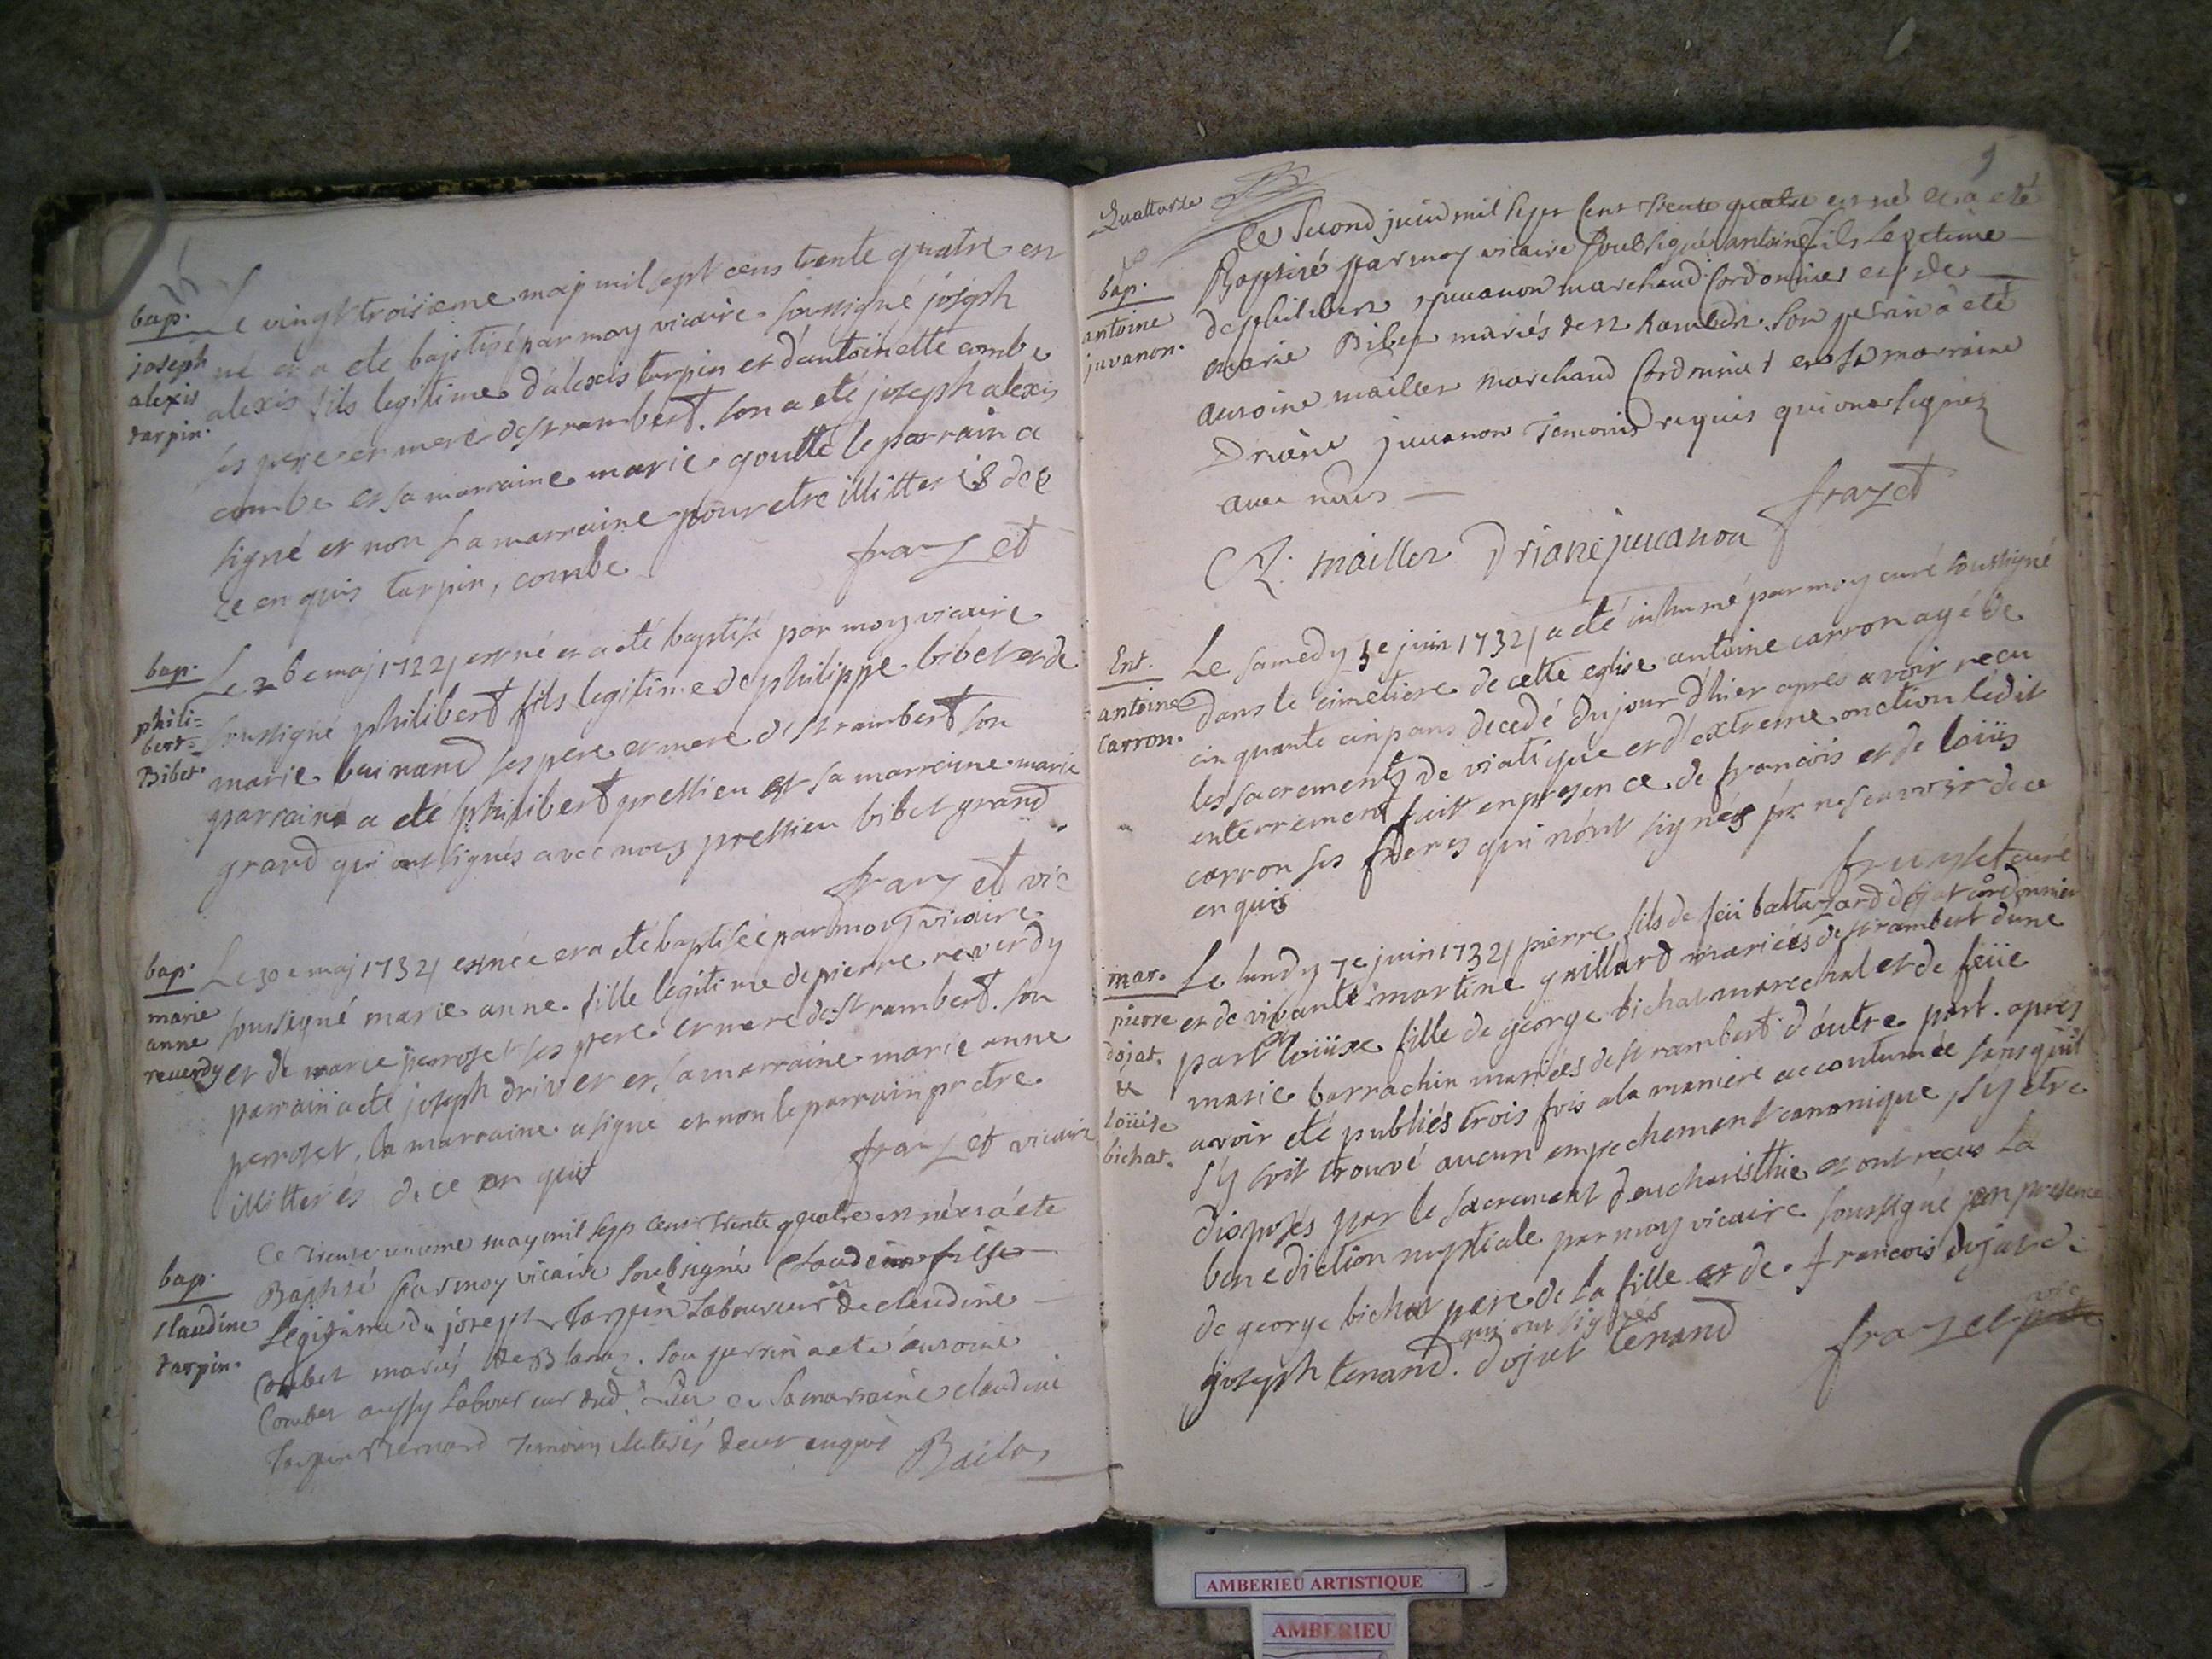 bap.
joseph
alexis
tarpin.
Le vingt troisieme maj mil sept cens trente quatre est
né et a eté baptisé par moy vicaire soussigné joseph
alexis fils legitime d'alexis tarpin et d'antoinette combe
ses pere et mere de st rambert. son a eté joseph alexis
combe et sa marraine marie goutte le parrain a
signé et non la marraine pour etre illitterés de
ce enquis tarpin, combe
frayet
bap.
phili=
bert=
Bibet.
Le 26e maj 1734 est né et a eté baptisé par moy vicaire
soussigné philibert fils legitime de philippe bibet et de
marie buinand ses pere et mere de st rambert son
parrain a eté philibert pressieu et sa marraine marie
grand qui ont signés avec nous pressieu bibet grand
frayet vic
bap.
marie
anne
reverdy
Le 30e maj 1734 est née et a eté baptisée par moy vicaire
soussigné marie anne fille légitime de pierre reverdy
et de marie perroset ses pere et mere de st rambert. son
parrain a eté joseph drivet et, sa marraine marie anne
perroset, la marraine a signé et non le parrain pr etre
illitterés de ce enquis
frayet vicaire
bap.
claudine
tarpin.
Ce trente unieme may mil sept cent trente quatre est né et a eté
Baptisé par moy vicaire soubsigné Claudine fille
Legitime de joseph Tarpin Laboureur et de claudine
Combet mariés de Blanaz. son perrin a eté antoine
Combet aussy Laboureur dud. lieu et sa marraine claudine
Tarpin Bernard Temoins illiterés de ce enquis
Bailo
Quattorze
bap.
antoine
juvanon.
Ce second juin mil sept Cent trente quatre est né et a eté
Baptisé par moy vicaire soubsigné antoine fils Legitime
de philibert juvanon marchand Cordonnier et de
marie Bibet mariés de st Rambert. son perrin a eté
antoine mailler marchand Cordonnier et sa marraine
Driane juvanon Temoins requis qui ont signez
avec nous
frayet
A. mailler Driane juvanon
Ent.
antoine
carron.
Le samedy 5e juin 1734 a eté inhumé par moy curé soussigné
dans le cimetiere de cette eglise antoine carron agé de
cinquante cinq ans decedé du jour d'hier apres avoir reçu
les sacrements de viatique et d'extreme onction ledit
enterrement fait en presence de francois et de loüis
carron ses freres qui n'ont signés pr ne scavoir de ce
enquis
frayet curé
mar.
pierre
dojat.
&
loüise
bichat.
Le lundy 7e juin 1734 pierre fils de feü baltazard dojat cordonnier
et de vivante martine guillard mariés de st rambert dune
part et loüise fille de george bichat marechal et de feüe
marie barrachin mariés de st rambert d'autre part. apres
avoir eté publiés trois fois a la maniere accoutumée sans qu'il
s'y soit trouvé aucun empechement canonique, s'y etre
disposés par le sacrement d'eucharisthie et ont reçus la
benediction nuptiale par moy vicaire soussigné en presence
de george bichat pere de la fille et de francois dojat de
joseph tenand. qui ont signés dojat tenand
frayet vic
AMBERIEU ARTISTIQUE
AMBERIEU